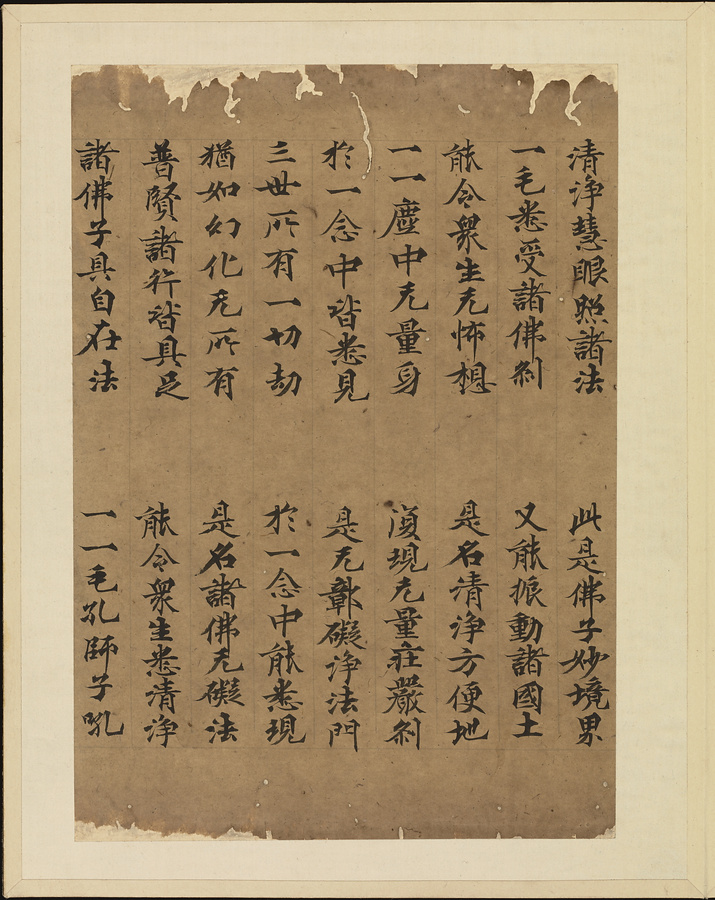 清淨慧眼照諸法 此是佛子妙境界
一毛悉受諸佛刹 又能振動諸國土
能令衆生无怖想 是名清淨方便地
一一塵中无量身 復現无量莊嚴刹
扵一念中皆悉見 是无鄣礙淨法門
三世所有一切劫 扵一念中能悉現
猶如幻化无所有 是名諸佛无礙法
普賢諸行皆具足 能令衆生悉清淨
諸佛子具自在法 一一毛孔師子吼